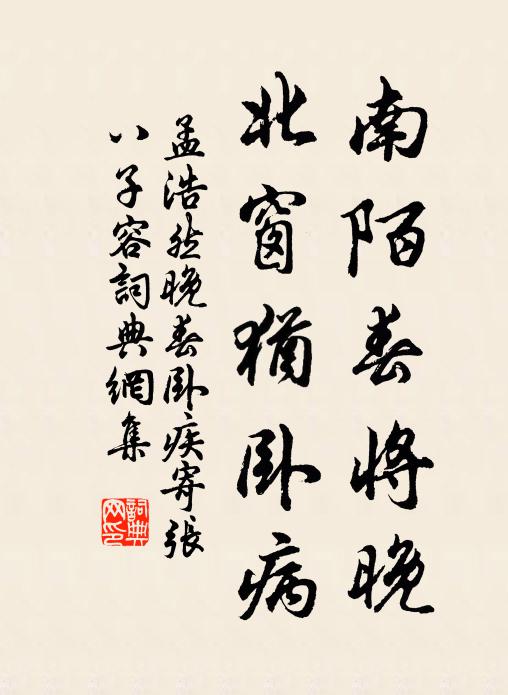 南陌春將晚
北窗猶卧病
孟浩然晚春卧疾寄張
八子容詞典網集
詞典网印